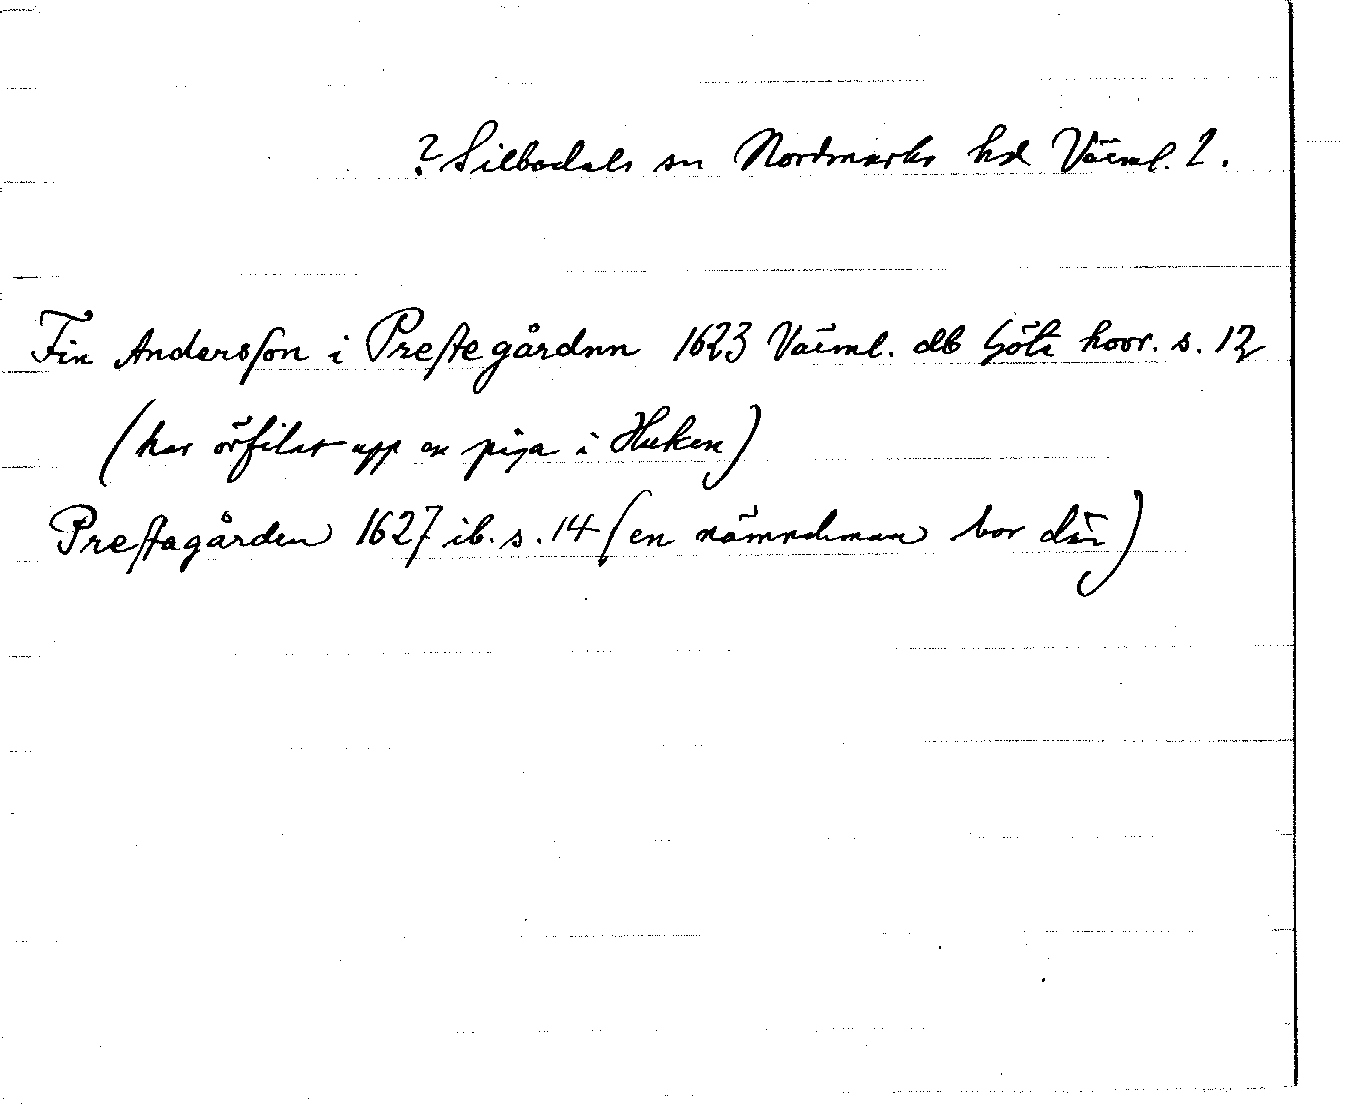 ? Silbodals sn Nordmarks hd Värml. l.
Fin Andersſon i Preſtegårdnn 1623 Värml. db Göta hovr. s. 12
(har örfilat upp en piga i Huken)
Preſtagården 1627 ib. s. 14 (en nämndeman bor där)